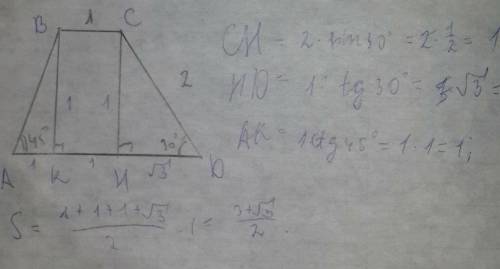 B 1 C
2
1 1
45° 30°
A 1 K 1 H √3 D
CH = 2 · sin30° = 2 · 1/2 = 1
HD = 1 · tg 30° = √3 =
AK = 1 tg 45° = 1 · 1 = 1;
S = (1 + 1 + 1 + √3)/2 · 1 = (3 + √3)/2.